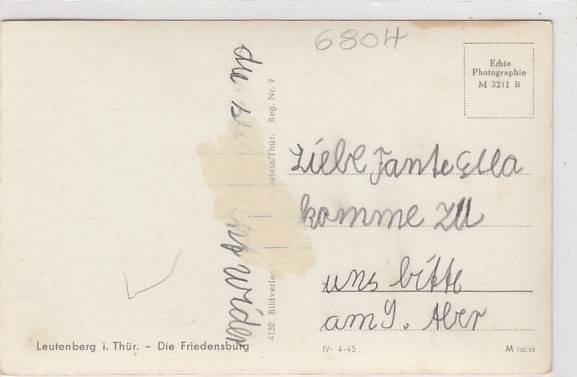 6804
Echte
Photographie
M 3211 B
Liebe Tante Ella
komme zu
uns bitte
am 9. Aber
die
wider
4132 Bildverlag
stein/Thür. Reg. Nr. 7
Leutenberg i. Thür. - Die Friedensburg
IV- 4-45
M